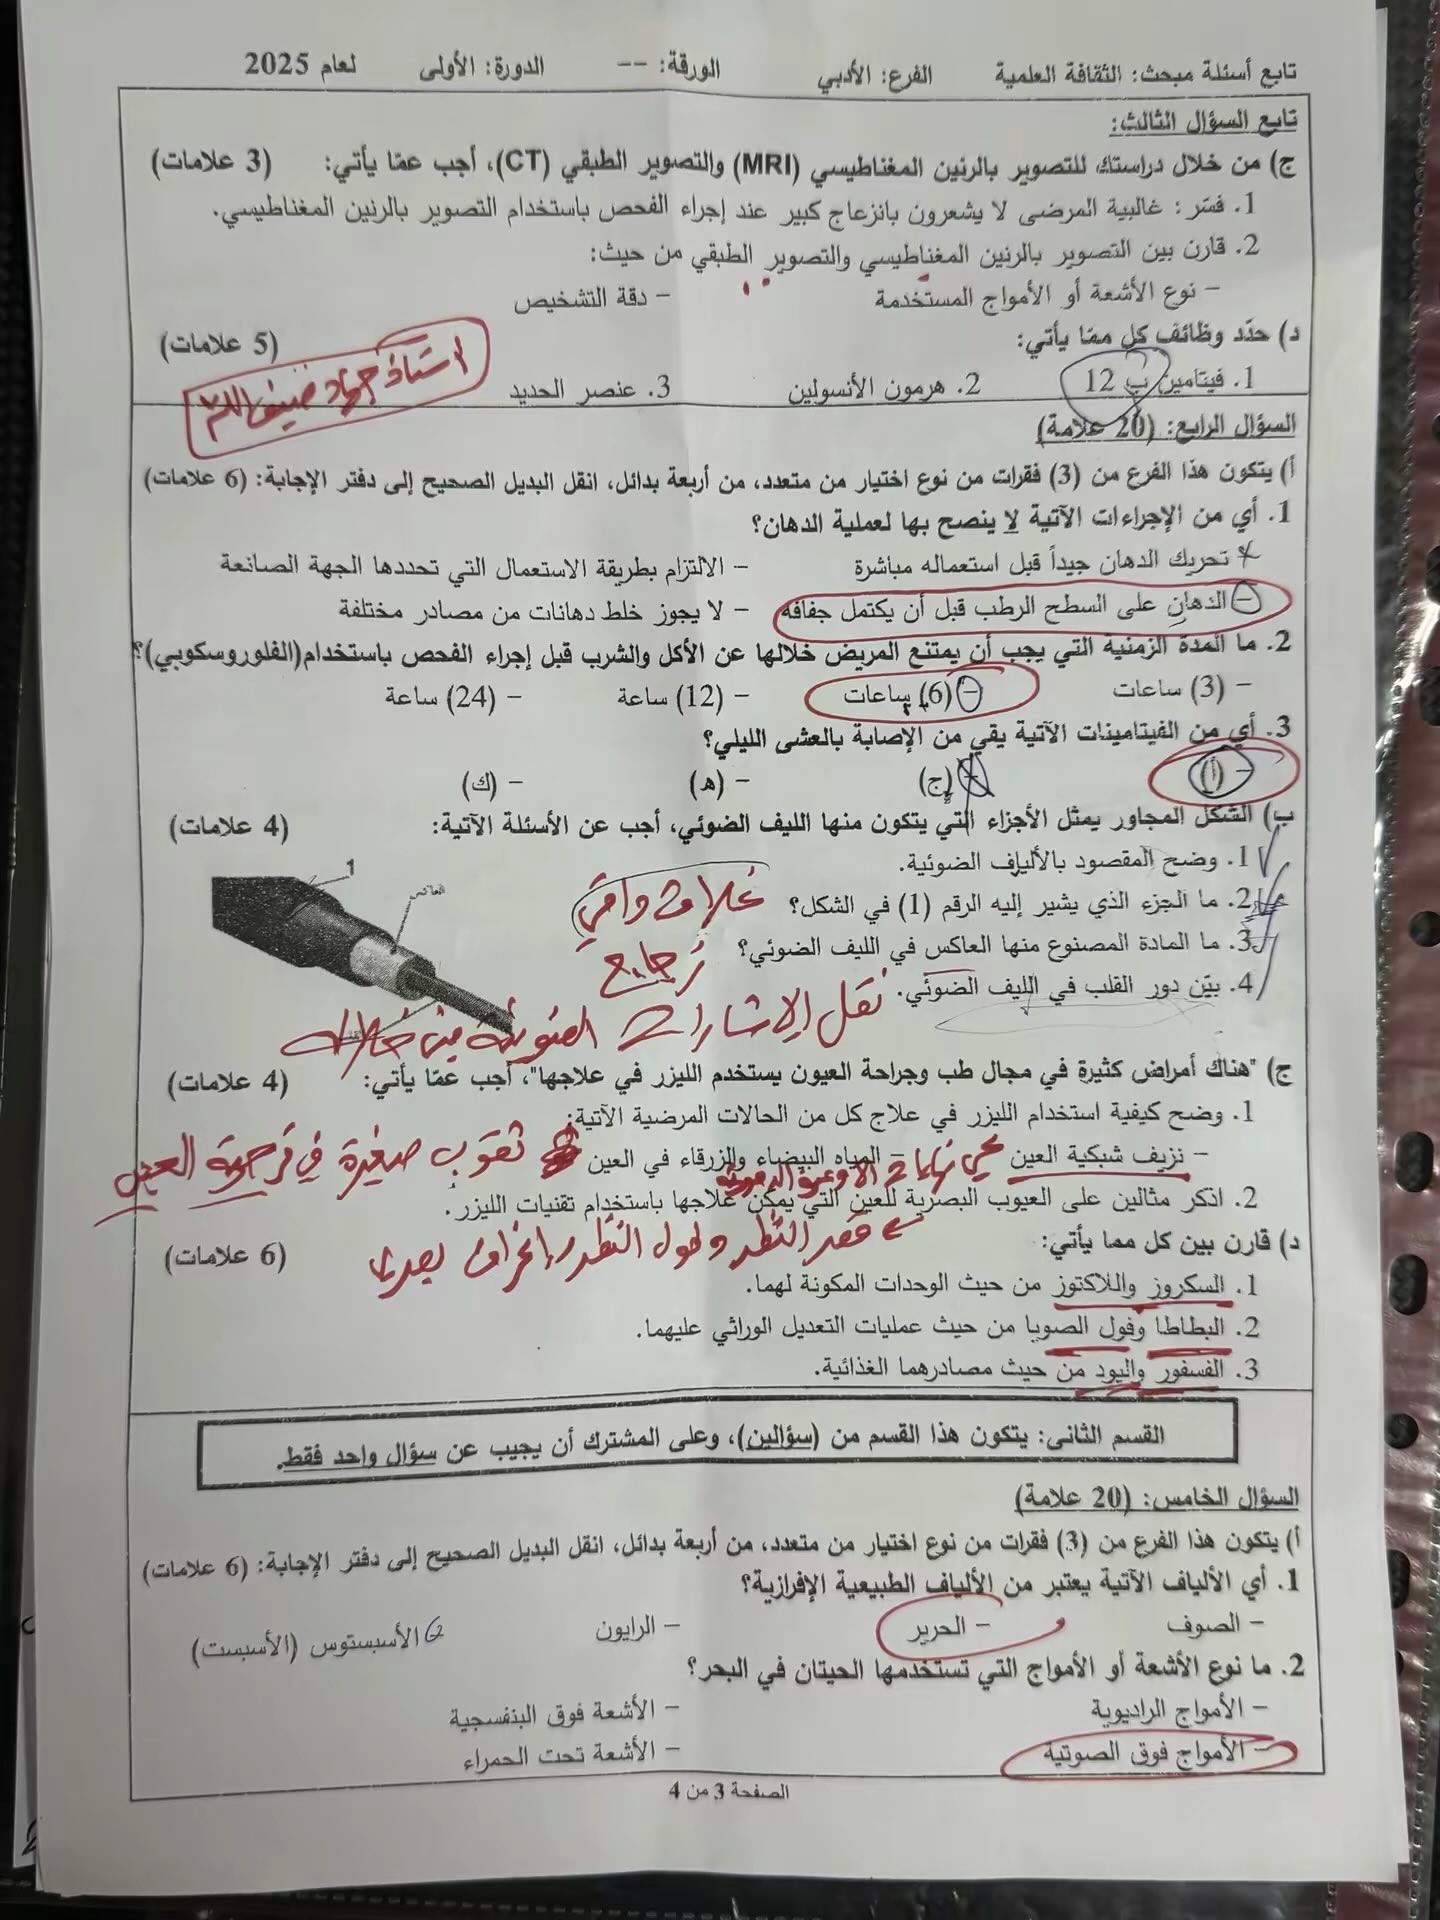 تابع أسئلة مبحث: الثقافة العلمية الفرع: الأدبي الورقة: -- الدورة: الأولى لعام 2025
تابع السؤال الثالث:
ج) من خلال دراستك للتصوير بالرنين المغناطيسي (MRI) والتصوير الطبقي (CT)، أجب عمّا يأتي: (3 علامات)
1. فسّر: غالبية المرضى لا يشعرون بانزعاج كبير عند إجراء الفحص باستخدام التصوير بالرنين المغناطيسي.
2. قارن بين التصوير بالرنين المغناطيسي والتصوير الطبقي من حيث:
- نوع الأشعة أو الأمواج المستخدمة - دقة التشخيص
د) حدّد وظائف كل ممّا يأتي: (5 علامات)
1. فيتامين ب 12 2. هرمون الأنسولين 3. عنصر الحديد
استاذ جهاد ضيف الله
السؤال الرابع: (20 علامة)
أ) يتكون هذا الفرع من (3) فقرات من نوع اختيار من متعدد، من أربعة بدائل، انقل البديل الصحيح إلى دفتر الإجابة: (6 علامات)
1. أي من الإجراءات الآتية لا ينصح بها لعملية الدهان؟
تحريك الدهان جيداً قبل استعماله مباشرة - الالتزام بطريقة الاستعمال التي تحددها الجهة الصانعة
- الدهان على السطح الرطب قبل أن يكتمل جفافه - لا يجوز خلط دهانات من مصادر مختلفة
2. ما المدة الزمنية التي يجب أن يمتنع المريض خلالها عن الأكل والشرب قبل إجراء الفحص باستخدام(الفلوروسكوبي)؟
- (3) ساعات - (6) ساعات - (12) ساعة - (24) ساعة
3. أي من الفيتامينات الآتية يقي من الإصابة بالعشى الليلي؟
- (أ) - (ج) - (ه) - (ك)
ب) الشكل المجاور يمثل الأجزاء التي يتكون منها الليف الضوئي، أجب عن الأسئلة الآتية: (4 علامات)
1. وضح المقصود بالألياف الضوئية.
1
العاكس
2. ما الجزء الذي يشير إليه الرقم (1) في الشكل؟ غلاف واقي
3. ما المادة المصنوع منها العاكس في الليف الضوئي؟ زجاج
4. بيّن دور القلب في الليف الضوئي. نقل الإشارات الضوئية من خلاله
ج) "هناك أمراض كثيرة في مجال طب وجراحة العيون يستخدم الليزر في علاجها"، أجب عمّا يأتي: (4 علامات)
1. وضح كيفية استخدام الليزر في علاج كل من الحالات المرضية الآتية:
- نزيف شبكية العين - المياه البيضاء والزرقاء في العين ثقوب صغيرة في قرحية العين
كي نهايات الأوعية الدموية
2. اذكر مثالين على العيوب البصرية للعين التي يمكن علاجها باستخدام تقنيات الليزر.
قصر النظر وطول النظر
د) قارن بين كل مما يأتي: (6 علامات)
1. السكروز واللاكتوز من حيث الوحدات المكونة لهما.
2. البطاطا وفول الصويا من حيث عمليات التعديل الوراثي عليهما.
3. الفسفور واليود من حيث مصادرهما الغذائية.
القسم الثاني: يتكون هذا القسم من (سؤالين)، وعلى المشترك أن يجيب عن سؤال واحد فقط.
السؤال الخامس: (20 علامة)
أ) يتكون هذا الفرع من (3) فقرات من نوع اختيار من متعدد، من أربعة بدائل، انقل البديل الصحيح إلى دفتر الإجابة: (6 علامات)
1. أي الألياف الآتية يعتبر من الألياف الطبيعية الإفرازية؟
- الصوف - الحرير - الرايون الأسبستوس (الأسبست)
2. ما نوع الأشعة أو الأمواج التي تستخدمها الحيتان في البحر؟
- الأمواج الراديوية - الأشعة فوق البنفسجية
- الأمواج فوق الصوتية - الأشعة تحت الحمراء
الصفحة 3 من 4